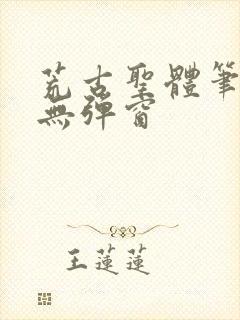 荒古聖體筆
無彈窗
王蓮蓮